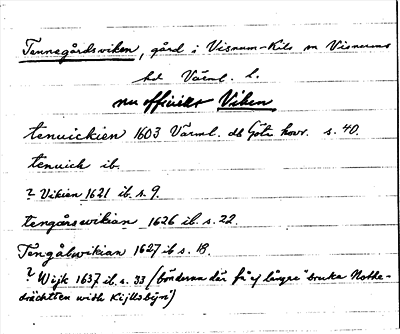 Tennegårdsviken, gård i Visnum-Kils sn Visnums
hd Värml. l.
nu officiellt Viken
tenuickien 1603 Värml. db Göta hovr. s. 40.
tenuich ib.
? Vikien 1621 ib. s. 9.
tengårsewikian 1626 ib. s. 22.
Tengålswikian 1627 ib s. 18.
? Wijk 1637 ib. s. 33 (bönderna där få ej längre "bruka Nothe-
drächtten widh Kijlsbÿn")